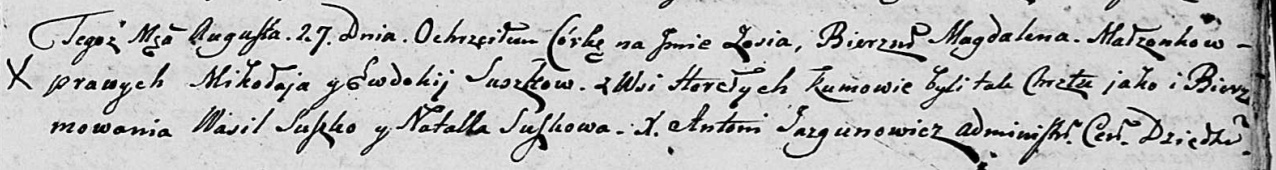 Tegoż Mca Augusta. 27. Dnia. Ochrzciłem Córkę na Jmie Zosia, Bierzm Magdalena. Małzonkow-
X prawych Mikołaja y Ewdokij Suszkow. z Wsi Horełych Kumowie byli tak Chrztu jako i Bierz
mowania Wasil Suszko y Natalla Suszkowa. X. Antoni Jazgunowicz administr. Cer. Dziedz.